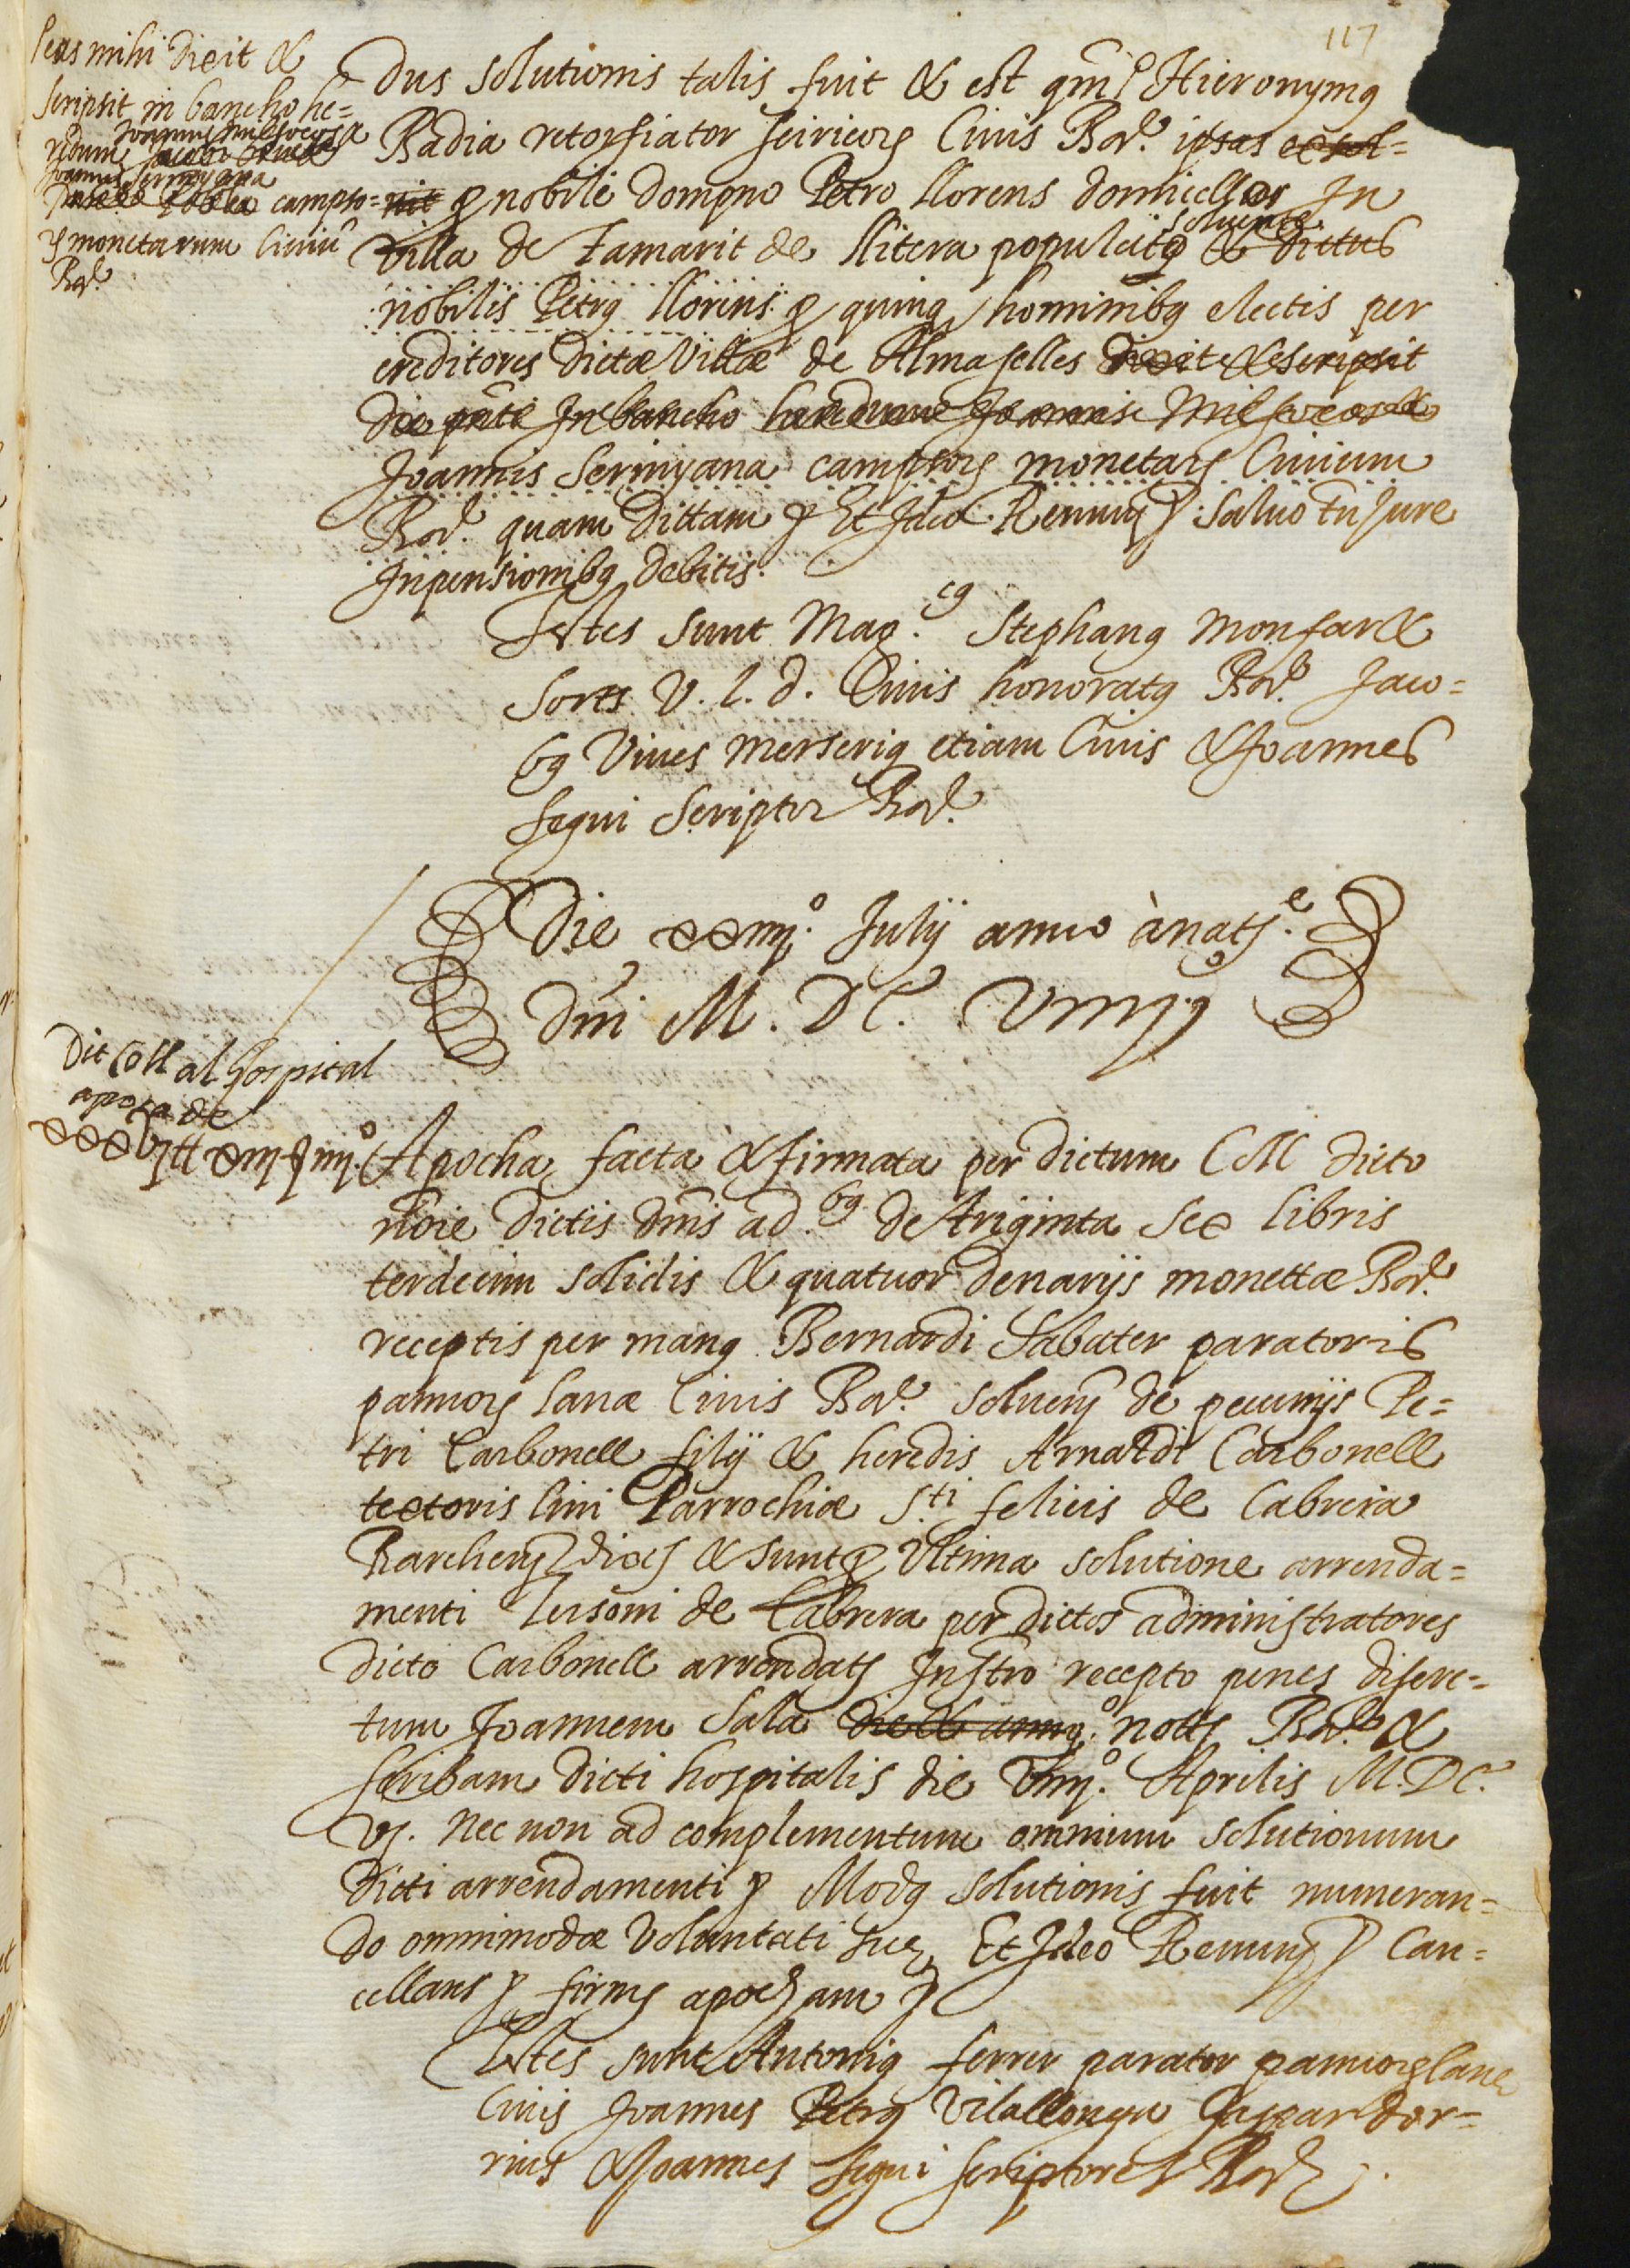 117
ipsas mihi dixit &
scripsit in bancho he=
Joannis Milsocos &
redum
Joannis Serinyana
campso=
monetarum Civiũ
Bar.
dus solutionis talis fuit & est qm̃ Hieronymq
Badia retorsiator siricorꝝ Civis Bar. ipsas extol=
nit ꝑ nobile dompno Petro llorens domicello In
Villa de Tamarit de llitera populato solvente & dictus
nobilis Petrq llorens ꝑ quinq hominibq electis per
creditores dictæ Villæ de Almaselles dixit & scripsit
die pñti In bancho hæredum Joannis Milsocos &
Joannis Serinyana campsorꝝ monetarꝝ Civium
Bar. quam dittam ꝑ Et Ideo Renunꝝ ꝑ Salvo tñ Jure
In pensionibq debitis.
Testes sunt Mag.cq Stephanq Monfar &
Sorts V. I. d. Civis honoratq Bar. Jaco=
bq Vives merseriq etiam Civis & Joannes
Segui Scriptor Bar.
Die xxiiij.o Julij anno à natꝭ.e
dñi M. DC. Viiij.o
Dit Coll al hospital
apoca de
xxxvj ll xiij s iiij.
Apocha facta & firmata per dictum Coll dicto
nõie dictis dñis ad.bq de triginta sex libris
terdecim solidis & quatuor denarijs monettæ Bar.
receptis per manq Bernardi Sabater paratoris
pannorꝝ lanæ Civis Bar. solvenꝭ de pecunijs Pe=
tri Carbonell filij & heredis Arnaldi Carbonell
textoris lini Parrochiæ S.ti felicis de Cabrera
Barchenꝭ diocꝭ & sunt ꝑ Ultima solutione arrenda=
menti Tersoni de Cabrera per dictos administratores
dicto Carbonell arrendatꝭ Instro recepto penes discre=
tum Joannem Sala die & anno notꝭ Bar. &
scribam dicti hospitalis die Viiij.o Aprilis M. DC.
Vj. Nec non ad complementum omnium solutionum
dicti arrendamenti ꝑ Modq solutionis fuit numeran=
do omnimodæ Voluntati suæ Et Ideo Renunꝭ ꝑ Can=
cellans ꝑ firmꝭ apocham ꝑ
Testes sunt Antoniq ferrer parator pannorꝝ lane
Civis Joannes Petrq Vilallonga Gaspar dor=
rius & Joannes Segui scriptores Bar.